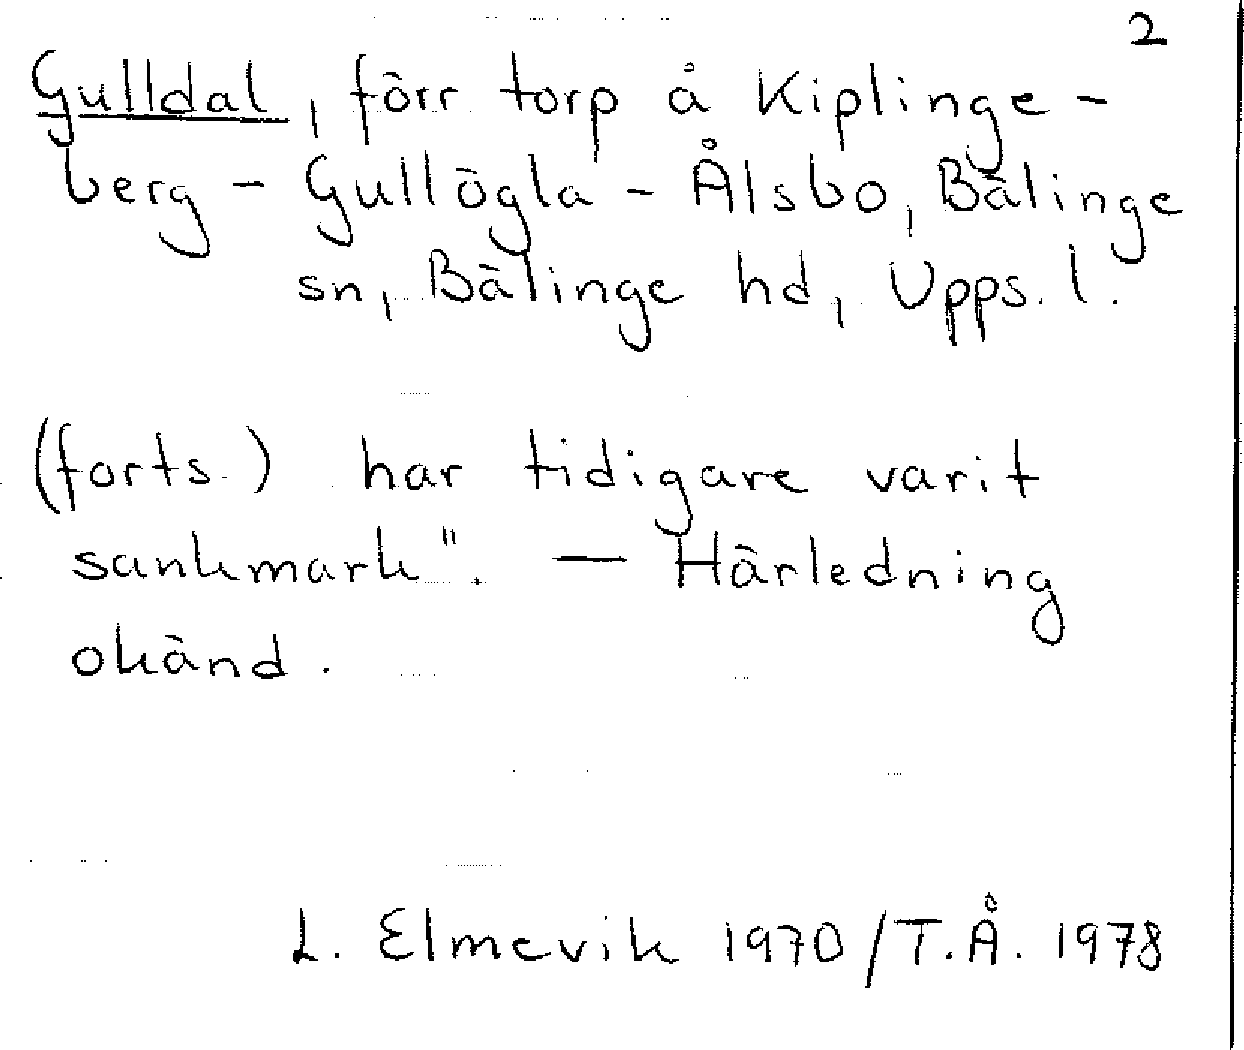 2
Gulldal, förr torp å Kiplinge-
berg - Gullögla - Ålsbo, Bälinge
sn, Bälinge hd, Upps. l.
(forts.) har tidigare varit
sankmark". — Härledning
okänd.
L. Elmevik 1970/T.Å. 1978